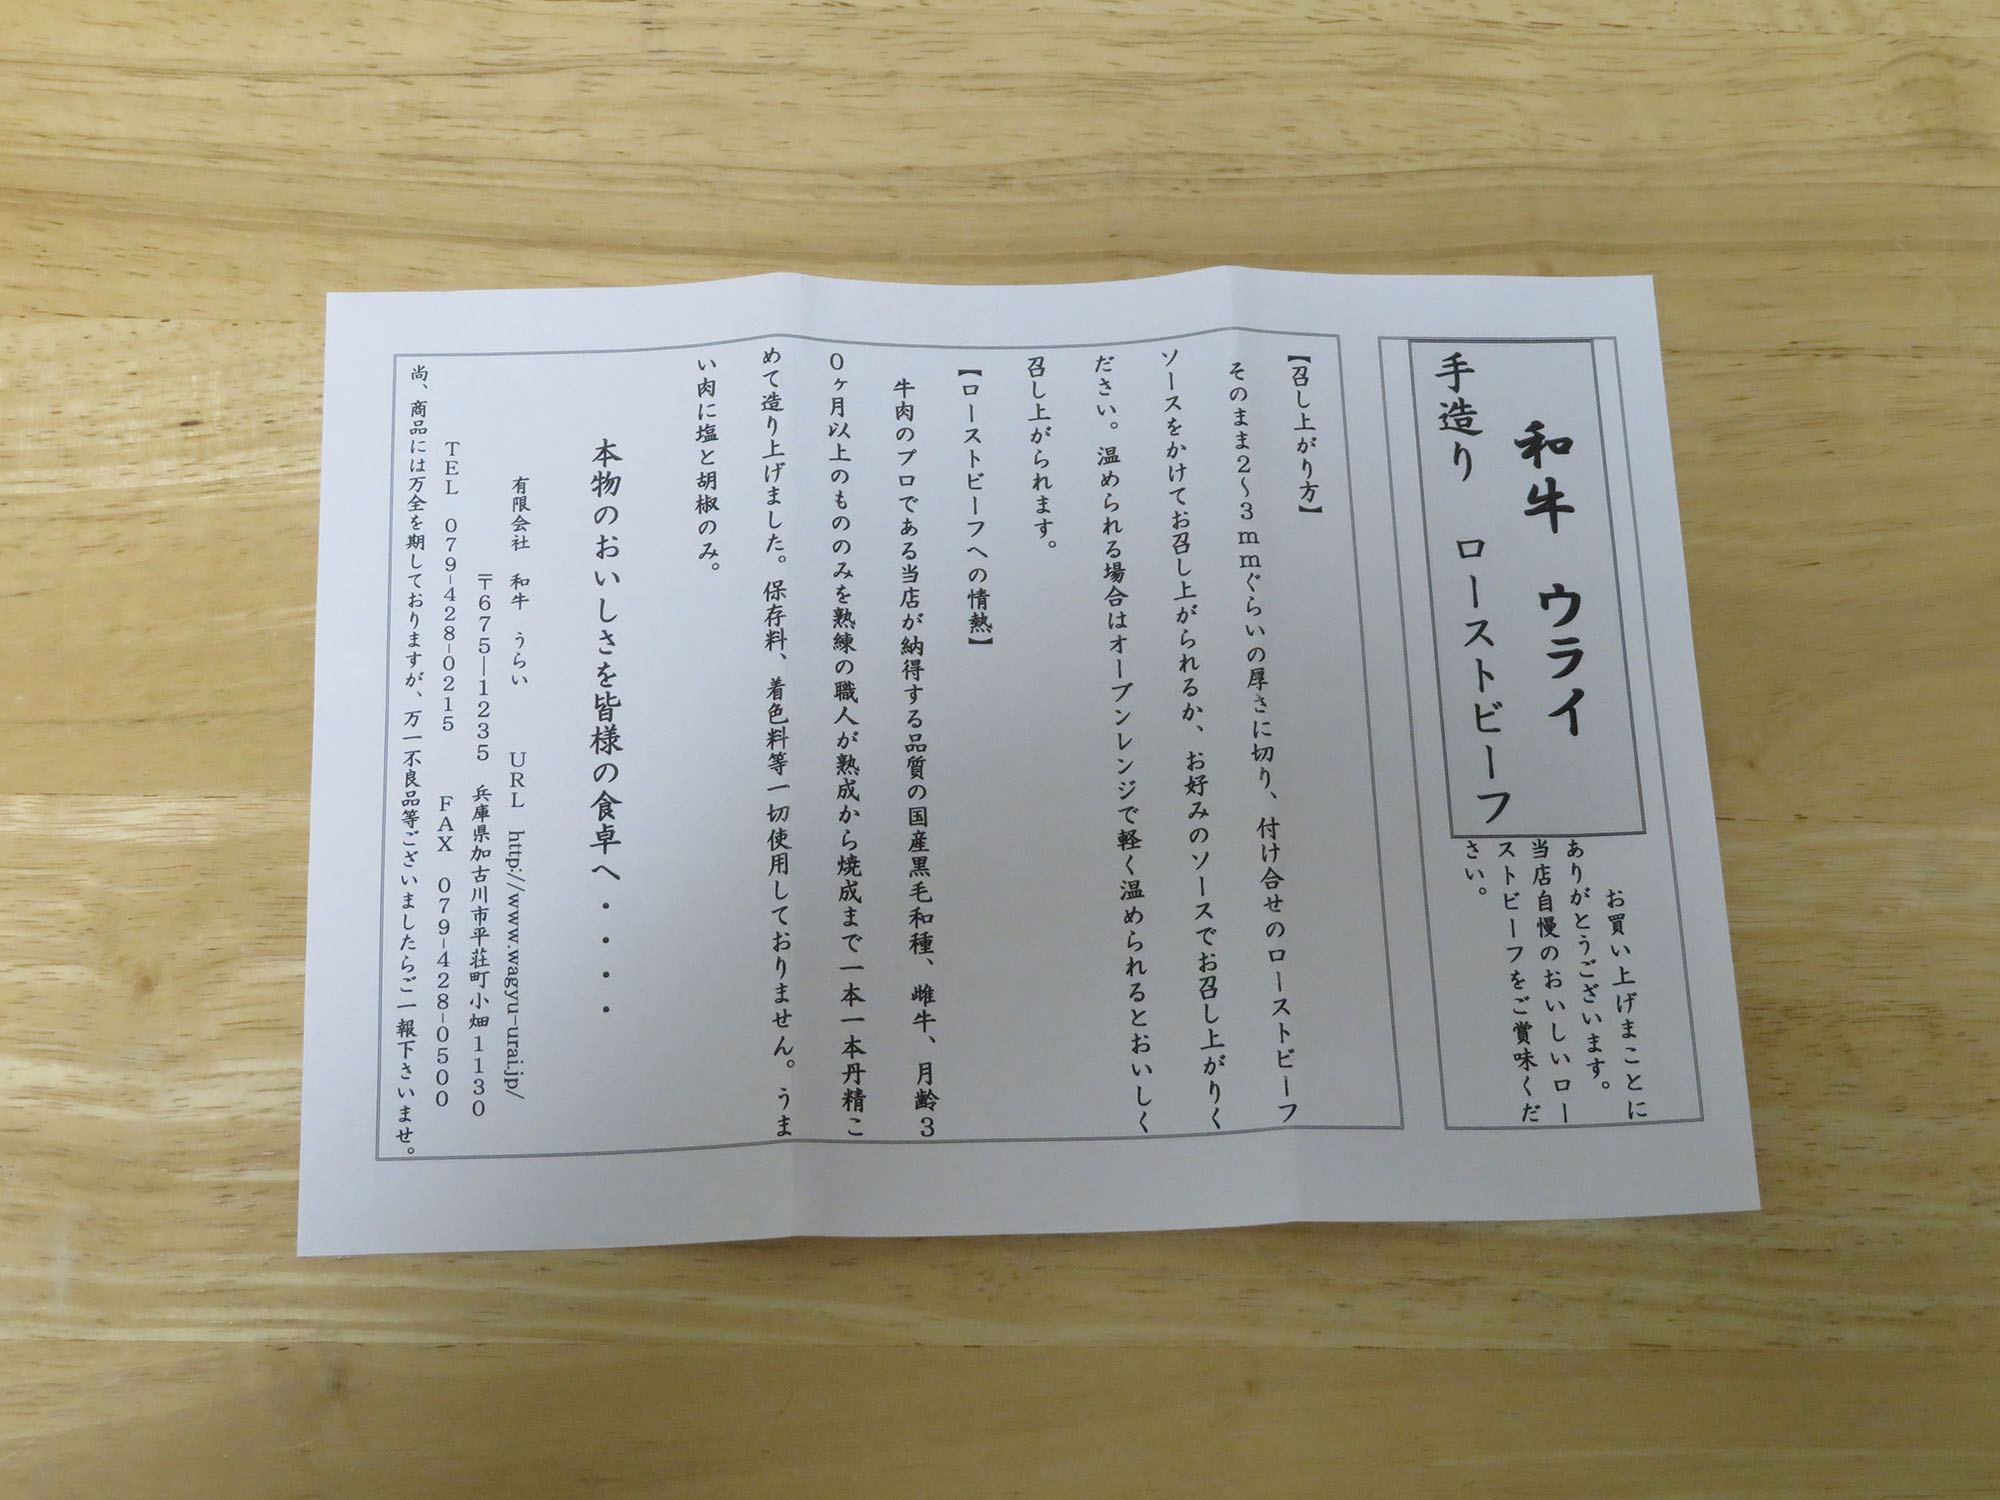 和牛 ウライ
手造り ローストビーフ
お買い上げまことに
ありがとうございます。
当店自慢のおいしいロー
ストビーフをご賞味くだ
さい。
【召し上がり方】
そのまま2～3mmぐらいの厚さに切り、付け合せのローストビーフ
ソースをかけてお召し上がられるか、お好みのソースでお召し上がりく
ださい。温められる場合はオーブンレンジで軽く温められるとおいしく
召し上がられます。
【ローストビーフへの情熱】
牛肉のプロである当店が納得する品質の国産黒毛和種、雌牛、月齢3
0ヶ月以上のもののみを熟練の職人が熟成から焼成まで一本一本丹精こ
めて造り上げました。保存料、着色料等一切使用しておりません。うま
い肉に塩と胡椒のみ。
本物のおいしさを皆様の食卓へ・・・・
有限会社 和牛 うらい URL http://www.wagyu-urai.jp/
〒675―1235 兵庫県加古川市平荘町小畑1130
TEL 079-428-0215 FAX 079-428-0500
尚、商品には万全を期しておりますが、万一不良品等ございましたらご一報下さいませ。